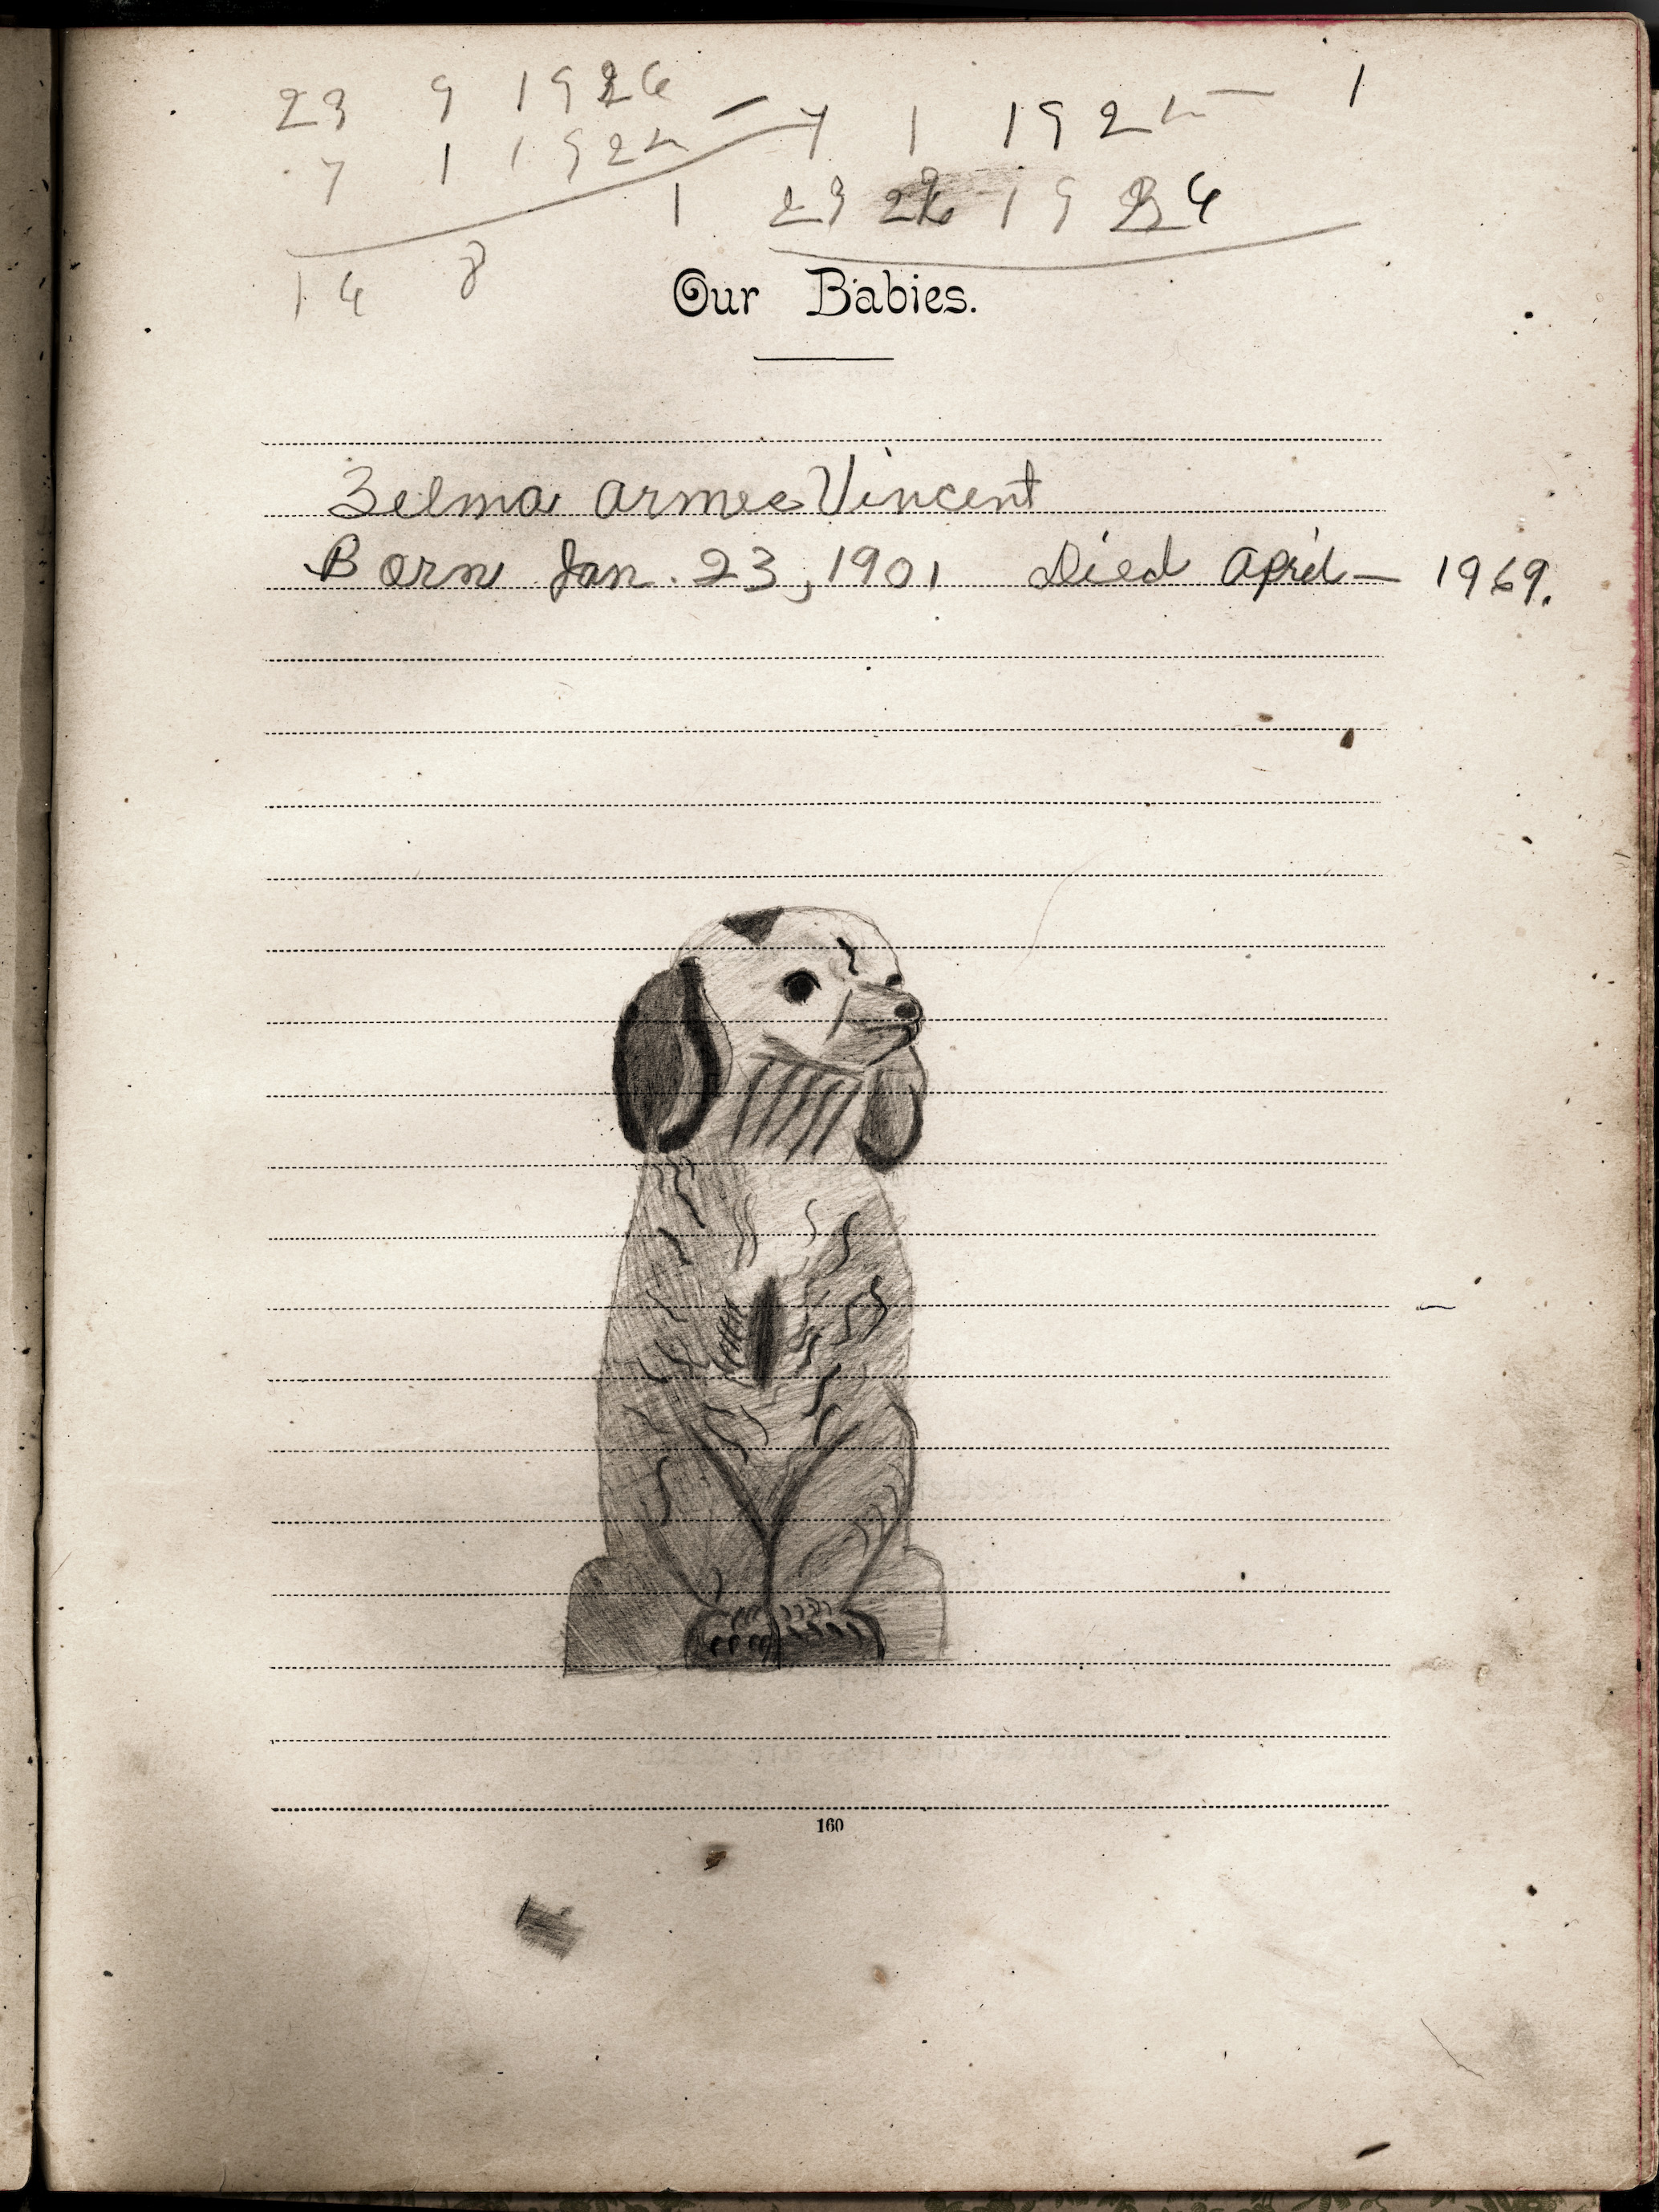 23 9 1926
7 1 1925 — 7 1 1925 — 1
1 23 1 9 6
16 8
Our Babies.
Zelma Armee Vincent
Born Jan. 23, 1901 Died April — 1969.
160